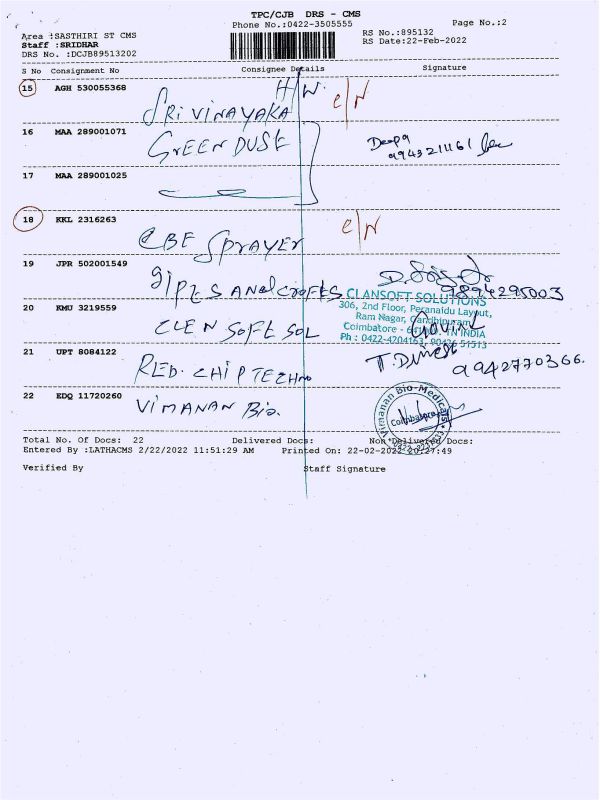 TPC/CJB DRS - CMS
Phone No.:0422-3505555
Page No.:2
Area :SASTHIRI ST CMS
RS No.:895132
Staff :SRIDHAR
RS Date:22-Feb-2022
DRS No. :DCJB89513202
S No Consignment No Consignee Details Signature
15 AGH 530055368 H/W. C/N
SRI VINAYAKA
16 MAA 289001071 GREEN DUSE Deepa
9943211161
17 MAA 289001025
18 KKL 2316263 C/N
CBE SPRAYER
19 JPR 502001549
GIPES ANd CROFTS 7894295003
CLANSOFT SOLUTIONS
306, 2nd Floor, Peranaidu Layout,
Ram Nagar, Gandhipuram,
Coimbatore - TN INDIA
Ph : 0422-4204163, 90426 51513
20 KMU 3219559
CLEN SOFT SOL
21 UPT 8084122 T. Dinesh
RED. CHIP TECHNO 9942770366.
22 EDQ 11720260 VIMANAN Bio.
Vimanan Bio-Medicals
Coimbatore
Total No. Of Docs: 22 Delivered Docs: Non Delivered Docs:
Entered By :LATHACMS 2/22/2022 11:51:29 AM Printed On: 22-02-2022 20:27:49
Verified By Staff Signature